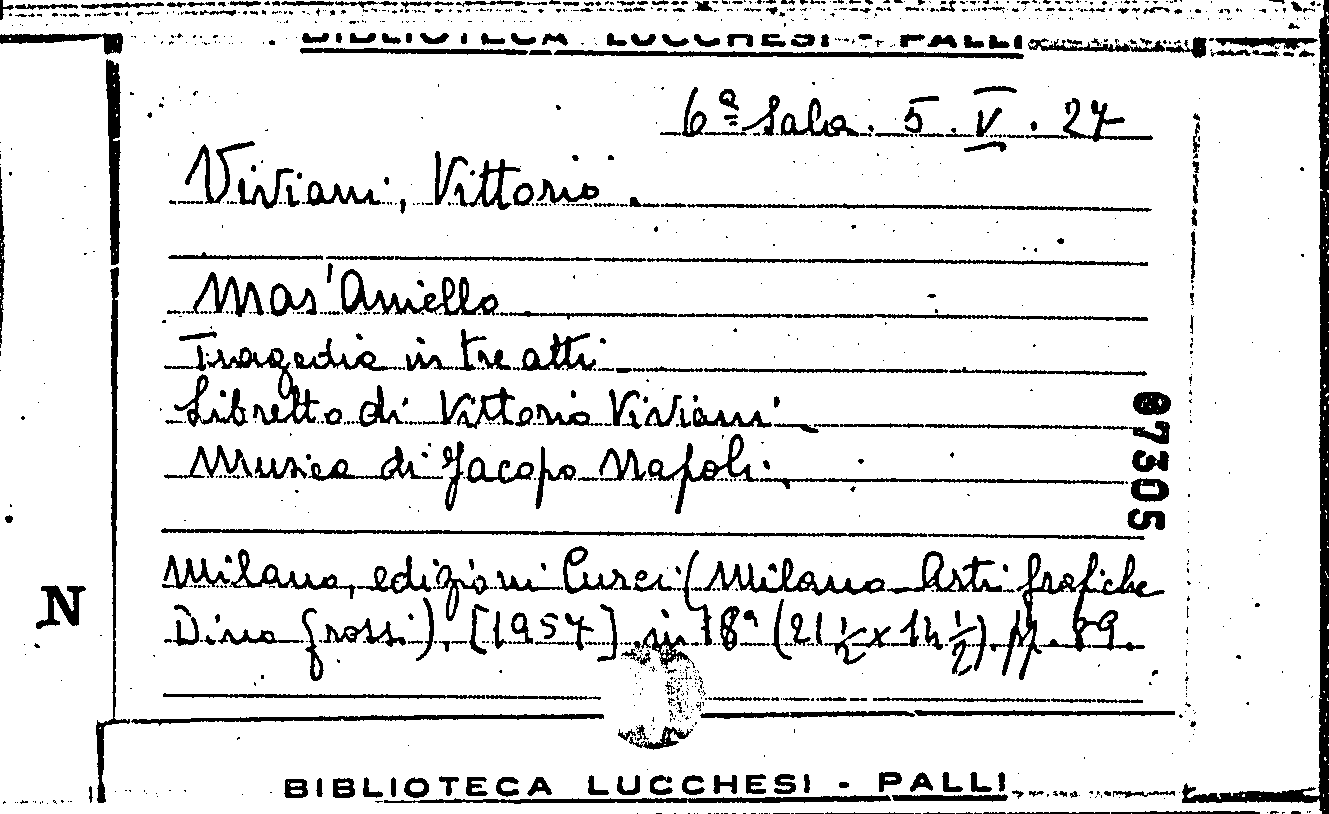 BIBLIOTECA LUCCHESI - PALLI
6ª Sala. 5. V. 27
Viviani, Vittorio.
Mas'Aniello
Tragedia in tre atti
Libretto di Vittorio Viviani.
Musica di Jacopo Napoli.
Milano, edizioni Curci (Milano Arti grafiche
Dino Grossi), [1957] in 18ª (21 ½ x 14 ½). pp. 89.
07305
N
BIBLIOTECA LUCCHESI - PALLI